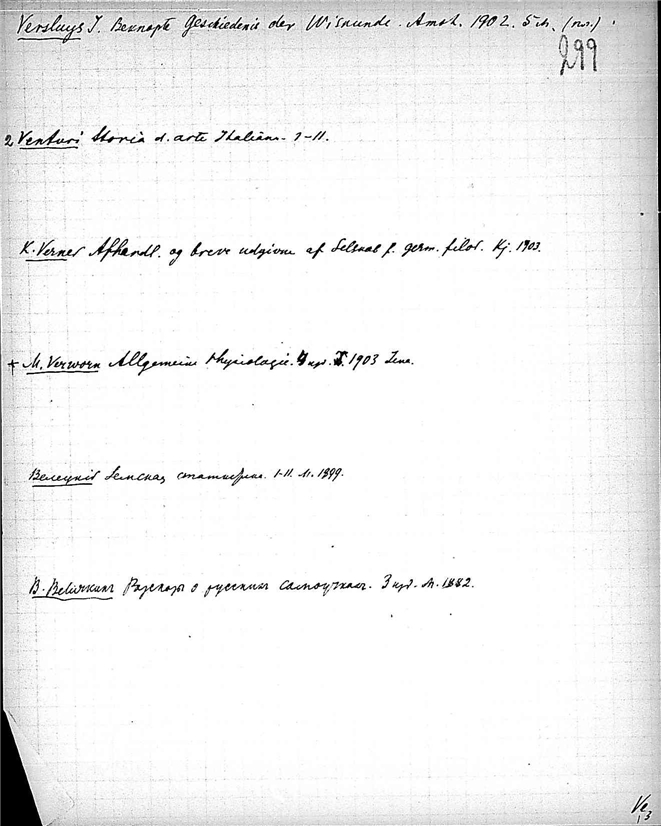 Versluys J. Beknopte Geschiedenis der Wiskunde. Amst. 1902. 5 м. (нл.)
299
2 Venturi Storia d. arte Italiana. 1-11.
K. Verner Afhandl. og breve udgivne af Selskab f. germ. filol. Kj. 1903.
+ M. Verworn Allgemeine Physiologie. 4 изд. 1903 Jena.
Велецкій Земская статистика. I-II. М. 1899.
В. Величкинъ Разсказы о русскихъ самоучкахъ. 3 изд. М. 1882.
Ve
13